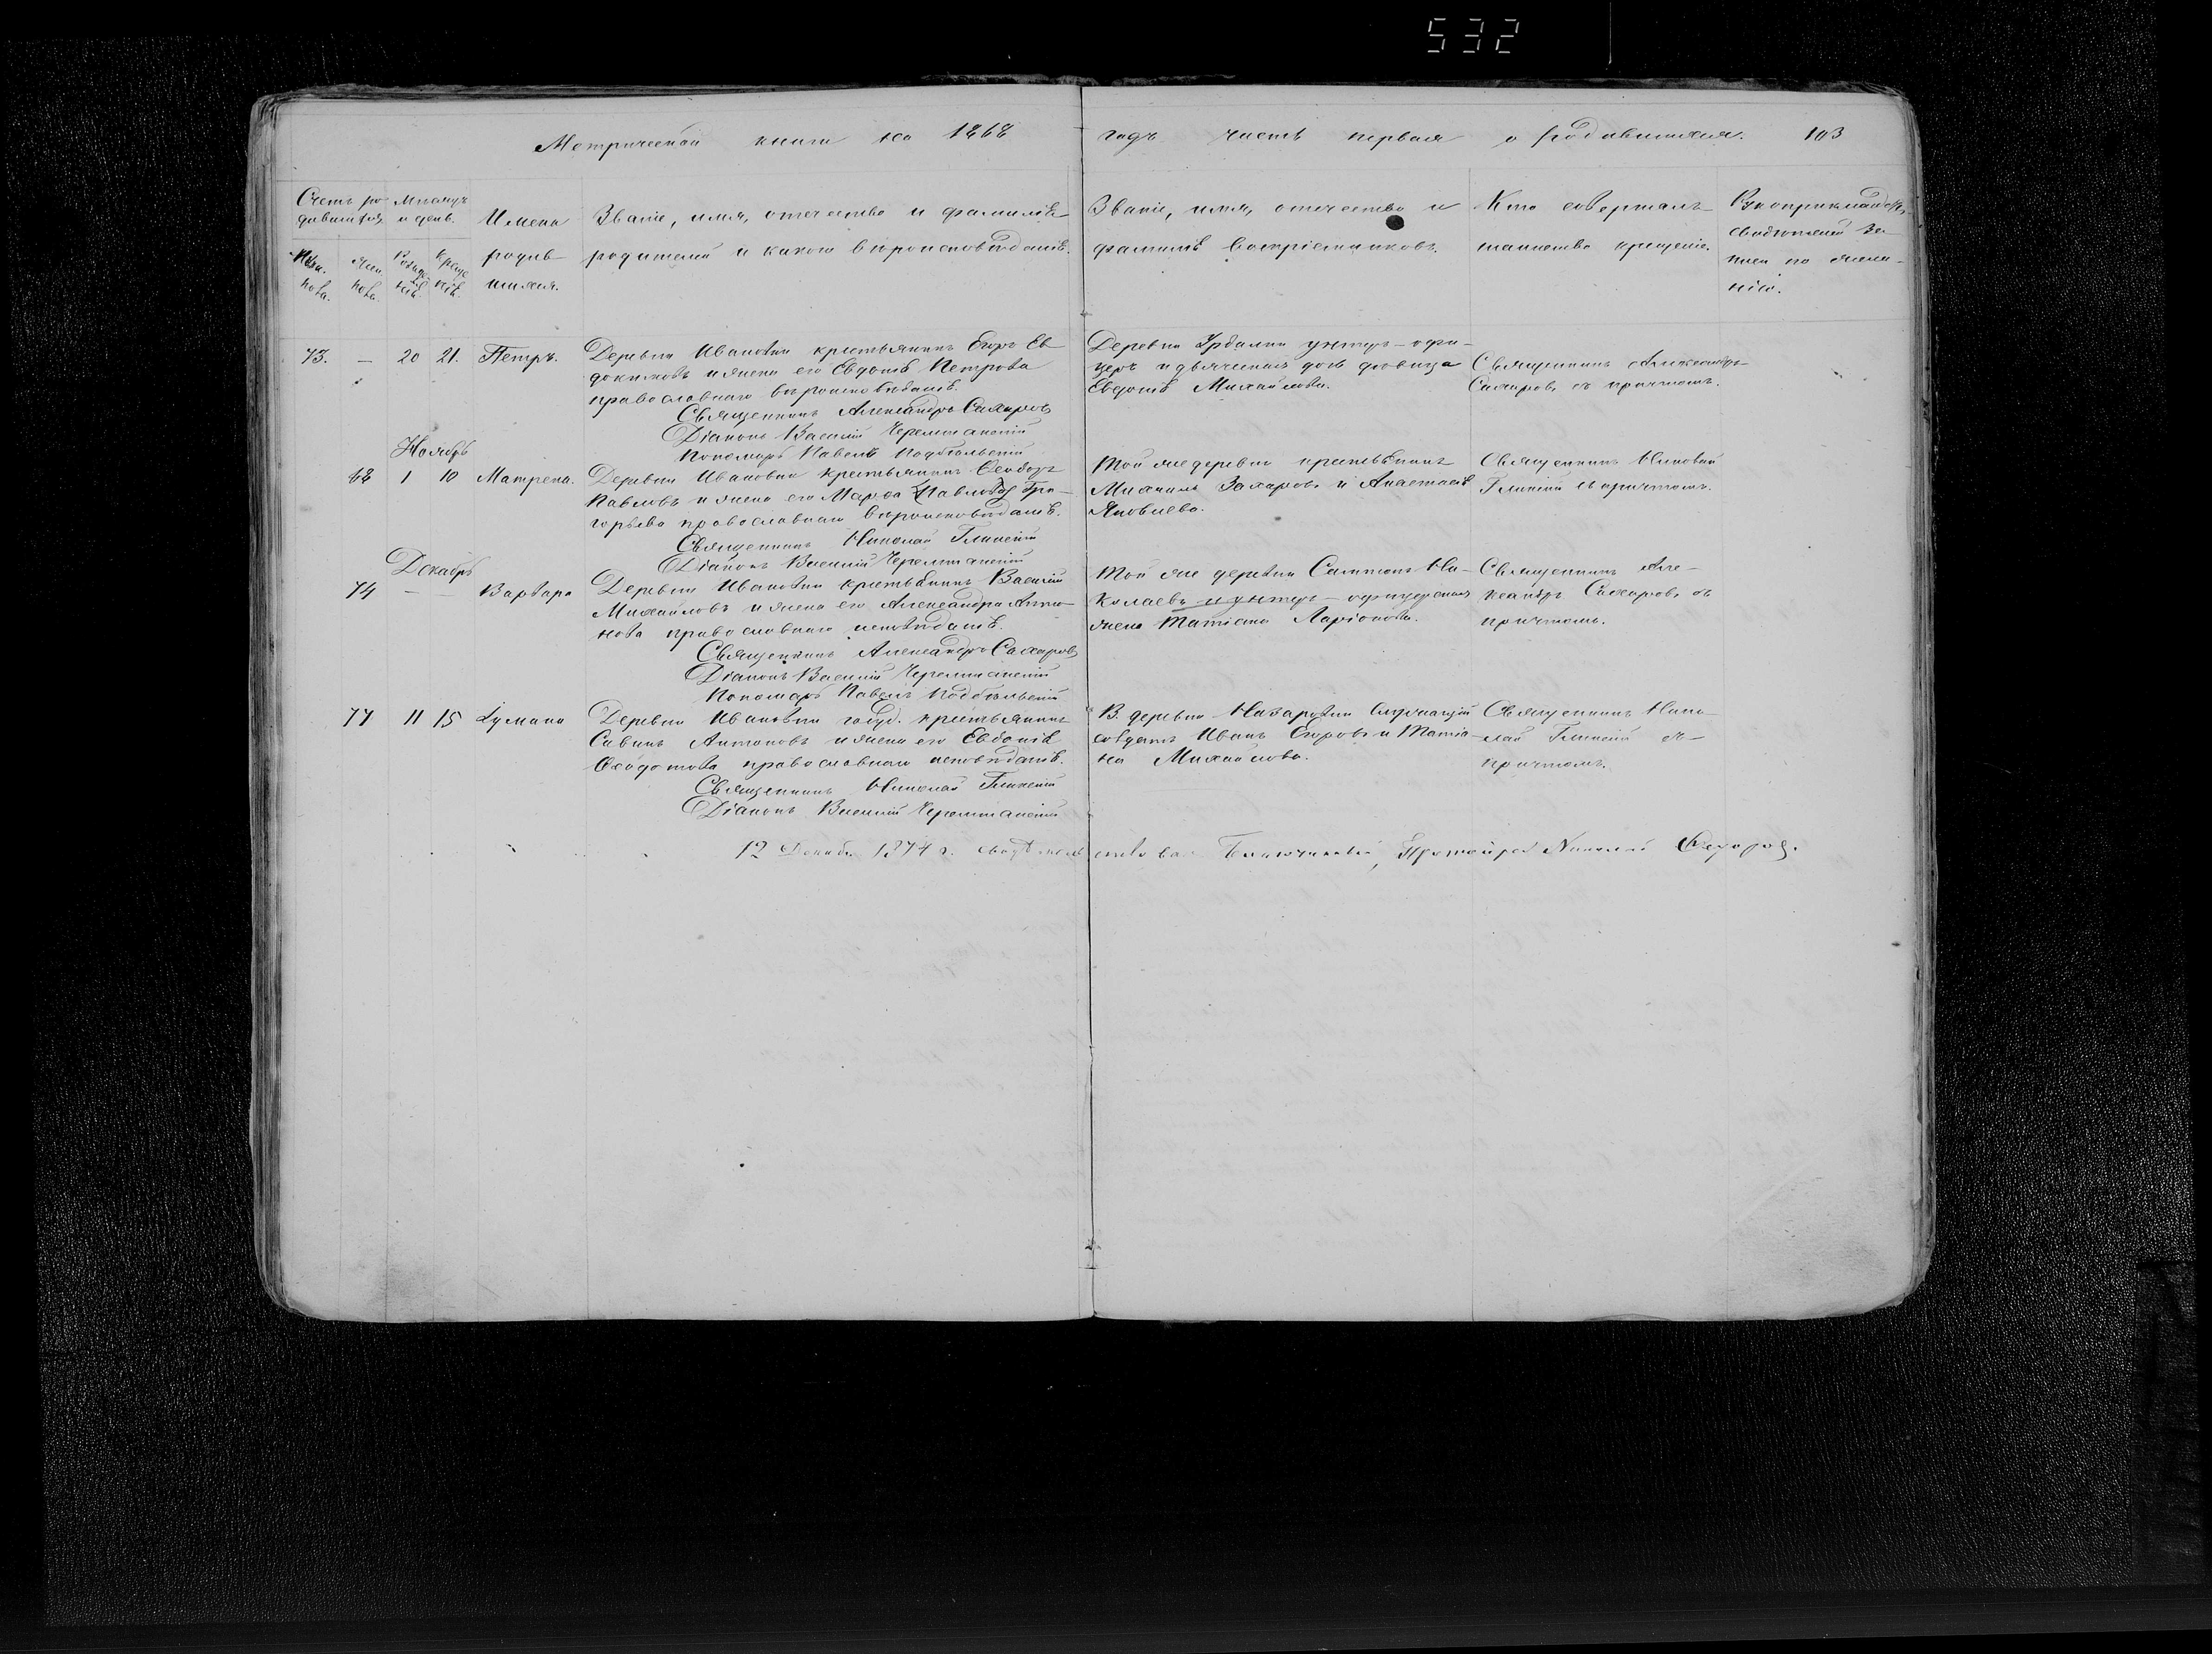 532
Метрической книги на 1868 годъ часть первая о родившихся. 103
Счетъ ро-
дившихся
Мѣсяцъ
и день.
Имена
родив-
шихся.
Званіе, имя, отчество и фамилія
родителей и какого вѣроисповѣданія.
Званіе, имя, отчество и
фамилія воспріемниковъ.
Кто совершалъ
таинство крещенія.
Рукоприкладство
свидѣтелей за-
писи по жела-
нію.
Муж.
пола.
Жен.
пола.
Рожде
нія.
Креще
нія.
73. — 20 21. Петръ.
Деревни Ивановки крестьянинъ Егоръ Ев-
докимовъ и жена его Евдокія Петрова
православнаго вѣроисповѣданія.
Священникъ Александръ Сахаровъ
Діаконъ Василій Черемшанскій
Пономарь Павелъ Подбѣльскій
Деревни Урдалки унтеръ-офи-
церъ
Евдокія Михайлова.
Священникъ Александръ
Сахаровъ съ причтомъ.
Ноябрь
68 1 10 Матрена.
Деревни Ивановки крестьянинъ Ѳеодоръ
Павловъ и жена его Марѳа Павлова Гри-
горьева православнаго вѣроисповѣданія.
Священникъ Николай Глинскій
Діаконъ Василій Черемшанскій
Той же деревни крестьянинъ
Михаилъ Захаровъ и Анастасія
Яковлева.
Священникъ Николай
Глинскій съ причтомъ.
Декабрь
74 — — Варвара
Деревни Ивановки крестьянинъ Василій
Михайловъ и жена его Александра Анто-
нова православнаго исповѣданія.
Священникъ Александръ Сахаровъ
Діаконъ Василій Черемшанскій
Пономарь Павелъ Подбѣльскій
Той же деревни Симеонъ Ни-
колаевъ и унтеръ-офицерская
жена Татіана Ларіонова.
Священникъ Але-
ксандръ Сахаровъ съ
причтомъ.
77 11 15 Іуліана
Деревни Ивановки госуд. крестьянинъ
Савинъ Антоновъ и жена его Евдокія
Ѳеодотова православнаго исповѣданія.
Священникъ Николай Глинскій
Діаконъ Василій Черемшанскій
В. деревни Назаровки служащій
солдатъ Иванъ Егоровъ и Татіа-
на Михайлова.
Священникъ Нико-
лай Глинскій съ
причтомъ.
12 Декабр. 1874 г. свидѣтельствовалъ Благочинный, Протоіерей Николай Ѳедоровъ.